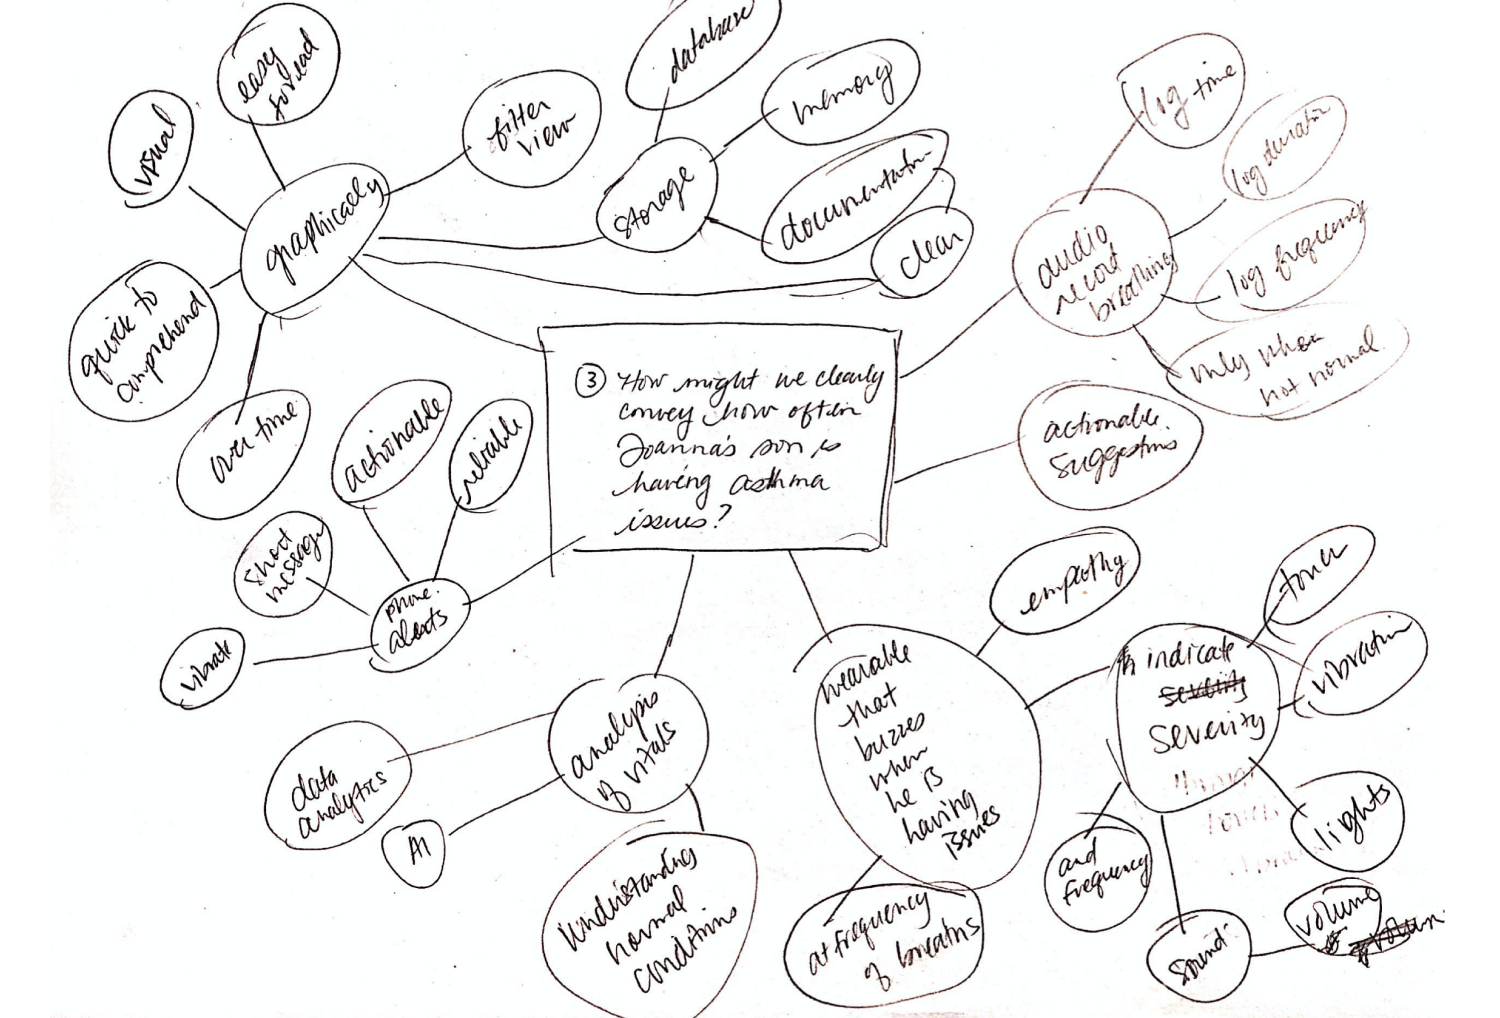 easy
to read
visual
filter
view
graphically
quick to
comprehend
over time
database
memory
storage
documentation
clear
log time
log duration
log frequency
audio
record
breathing
only when
not normal
actionable
suggestions
③ How might we clearly
convey how often
Joanna's son is
having asthma
issues?
actionable
reliable
short
message
phone
alerts
vibrate
analysis
of vitals
data
analytics
AI
understanding
normal
conditions
wearable
that
buzzes
when
he is
having
issues
empathy
at frequency
of breaths
indicate
severity
severity
touch
vibration
lights
and
frequency
sound
volume
volume